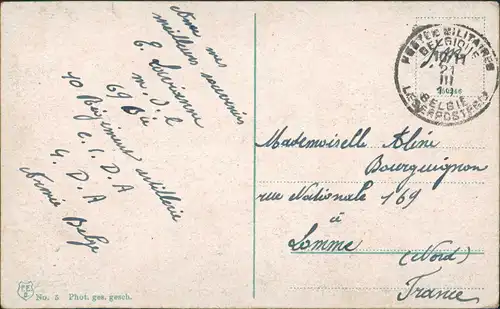 Avec mes
meilleurs souvenirs
E.
m. d. l.
69 Bie
10 Regiment artillerie
C. I. D. A
G. D. A
Armée Belge
POSTES MILITAIRES
BELGIQUE
21
III
BELGIË
LEGERPOSTERIJ
Mademoiselle Aline
Bourguignon
rue Nationale 169
à
Lomme
(Nord)
France
No. 5 Phot. ges. gesch.